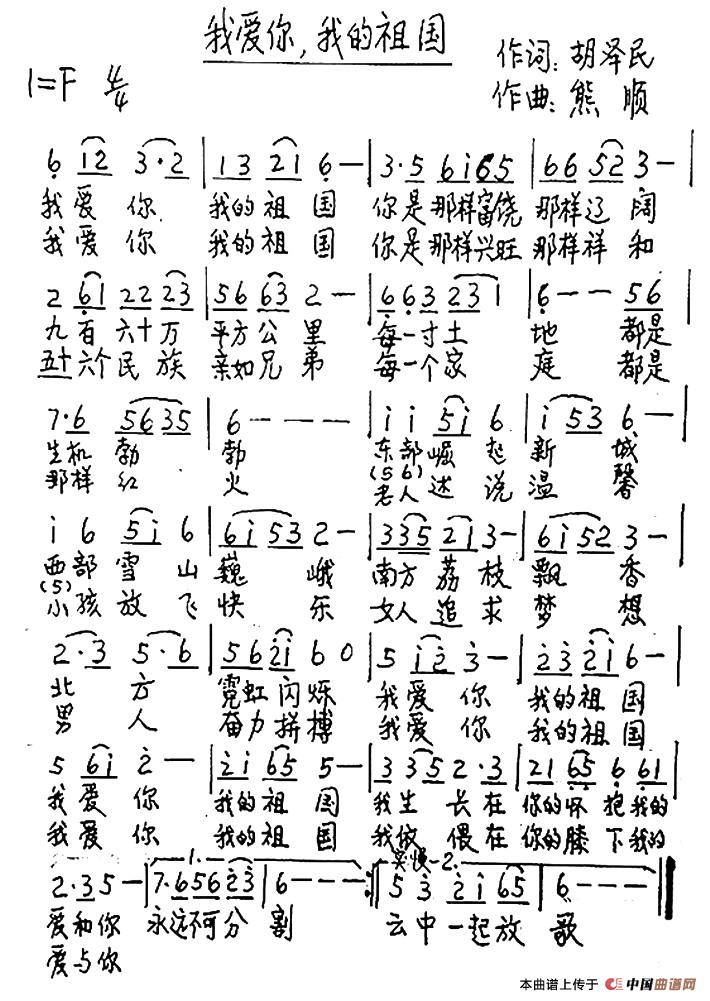 我爱你,我的祖国
作词:胡泽民
1=F 4/4
作曲:熊顺
6 12 3·2 | 13 21 6— | 3·5 6i65 | 66 52 3— |
我爱 你 我的祖 国 你是那样富饶 那样辽 阔
我爱 你 我的祖 国 你是那样兴旺 那样祥 和
2 61 22 23 | 56 63 2 — | 663 231 | 6·—— 56 |
九百六十万 平方公 里 每一寸土 地 都是
五十六个民族 亲如兄 弟 每一个家 庭 都是
7·6 5635 | 6 — — — | i i 5i 6 | i 53 6 — |
生机 勃 勃 东部崛 起 新 城
那样 红 火 (5 6)老人述 说 温 馨
i 6 5i 6 | 6i53 2 — | 335 21 3— | 6i52 3 — |
西部雪 山 巍 峨 南方荔枝 飘 香
(5)小孩放 飞 快 乐 女人追求 梦 想
2·3 5·6 | 56 2i 6 0 | 5 i2 3 — | 23 2i 6 — |
北 方 霓虹闪烁 我爱 你 我的祖 国
男 人 奋力拼搏 我爱 你 我的祖 国
5 6i 2 — | 2i 65 5— | 3 35 2·3 | 21 65 6 61 |
我爱 你 我的祖 国 我生 长在 你的怀 抱我的
我爱 你 我的祖 国 我依 偎在 你的膝 下我的
1. 突慢 2.
2·35— | 7·656 23 | 6 — — — :‖ 5 3 2i 65 | 6 — — — ‖
爱和你 永远不可分 割 云中一起放 歌
爱与你
本曲谱上传于 中国曲谱网